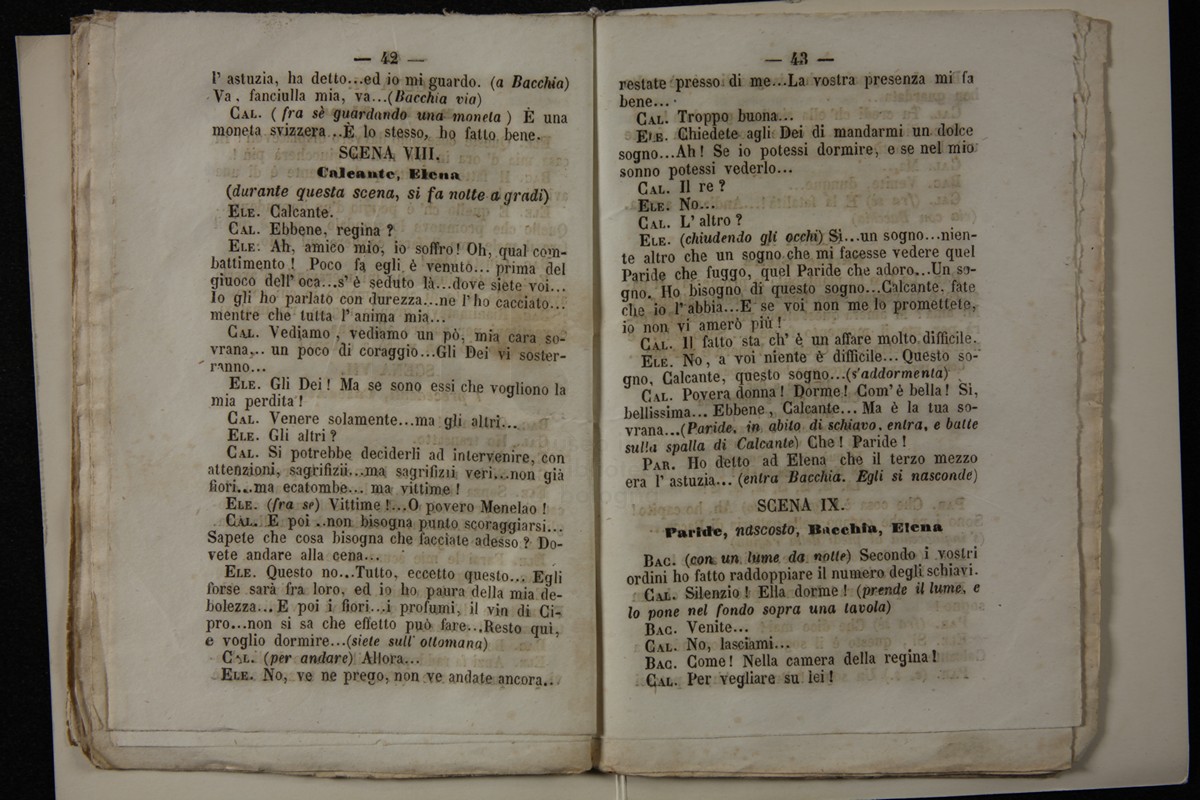 — 42 —
l' astuzia, ha detto...ed io mi guardo. (a Bacchia)
Va, fanciulla mia, va...(Bacchia via)
CAL. ( fra sè guardando una moneta ) È una
moneta svizzera...È lo stesso, ho fatto bene.
SCENA VIII.
Calcante, Elena
(durante questa scena, si fa notte a gradi)
ELE. Calcante.
CAL. Ebbene, regina ?
ELE. Ah, amico mio, io soffro! Oh, qual com-
battimento ! Poco fa egli è venuto... prima del
giuoco dell' oca...s' è seduto là...dove siete voi...
Io gli ho parlato con durezza...ne l'ho cacciato...
mentre che tutta l' anima mia...
CAL. Vediamo , vediamo un pò, mia cara so-
vrana... un poco di coraggio...Gli Dei vi soster-
ranno...
ELE. Gli Dei! Ma se sono essi che vogliono la
mia perdita!
CAL. Venere solamente...ma gli altri...
ELE. Gli altri ?
CAL. Si potrebbe deciderli ad intervenire, con
attenzioni, sagrifizii...ma sagrifizii veri...non già
fiori...ma ecatombe... ma vittime !
ELE. (fra se) Vittime !...O povero Menelao !
CAL. E poi ..non bisogna punto scoraggiarsi...
Sapete che cosa bisogna che facciate adesso ? Do-
vete andare alla cena...
ELE. Questo no...Tutto, eccetto questo... Egli
forse sarà fra loro, ed io ho paura della mia de-
bolezza... E poi i fiori...i profumi, il vin di Ci-
pro...non si sa che effetto può fare...Resto qui,
e voglio dormire...(siete sull' ottomana)
CAL. (per andare) Allora...
ELE. No, ve ne prego, non ve andate ancora...
— 43 —
restate presso di me...La vostra presenza mi fa
bene...
CAL. Troppo buona...
ELE. Chiedete agli Dei di mandarmi un dolce
sogno...Ah! Se io potessi dormire, e se nel mio
sonno potessi vederlo...
CAL. Il re ?
ELE. No...
CAL. L' altro ?
ELE. (chiudendo gli occhi) Si...un sogno...nien-
te altro che un sogno che mi facesse vedere quel
Paride che fuggo, quel Paride che adoro...Un so-
gno. Ho bisogno di questo sogno...Calcante, fate
che io l' abbia...E se voi non me lo promettete,
io non vi amerò più !
CAL. Il fatto sta ch' è un affare molto difficile.
ELE. No, a voi niente è difficile... Questo so-
gno, Calcante, questo sogno...(s'addormenta)
CAL. Povera donna ! Dorme ! Com' è bella ! Si,
bellissima... Ebbene , Calcante... Ma è la tua so-
vrana...(Paride, in abito di schiavo, entra, e batte
sulla spalla di Calcante) Che ! Paride !
PAR. Ho detto ad Elena che il terzo mezzo
era l' astuzia... (entra Bacchia. Egli si nasconde)
SCENA IX.
Paride, nascosto, Bacchia, Elena
BAC. (con un lume da notte) Secondo i vostri
ordini ho fatto raddoppiare il numero degli schiavi.
CAL. Silenzio ! Ella dorme ! (prende il lume, e
lo pone nel fondo sopra una tavola)
BAC. Venite...
CAL. No, lasciami...
BAC. Come! Nella camera della regina!
CAL. Per vegliare su lei !